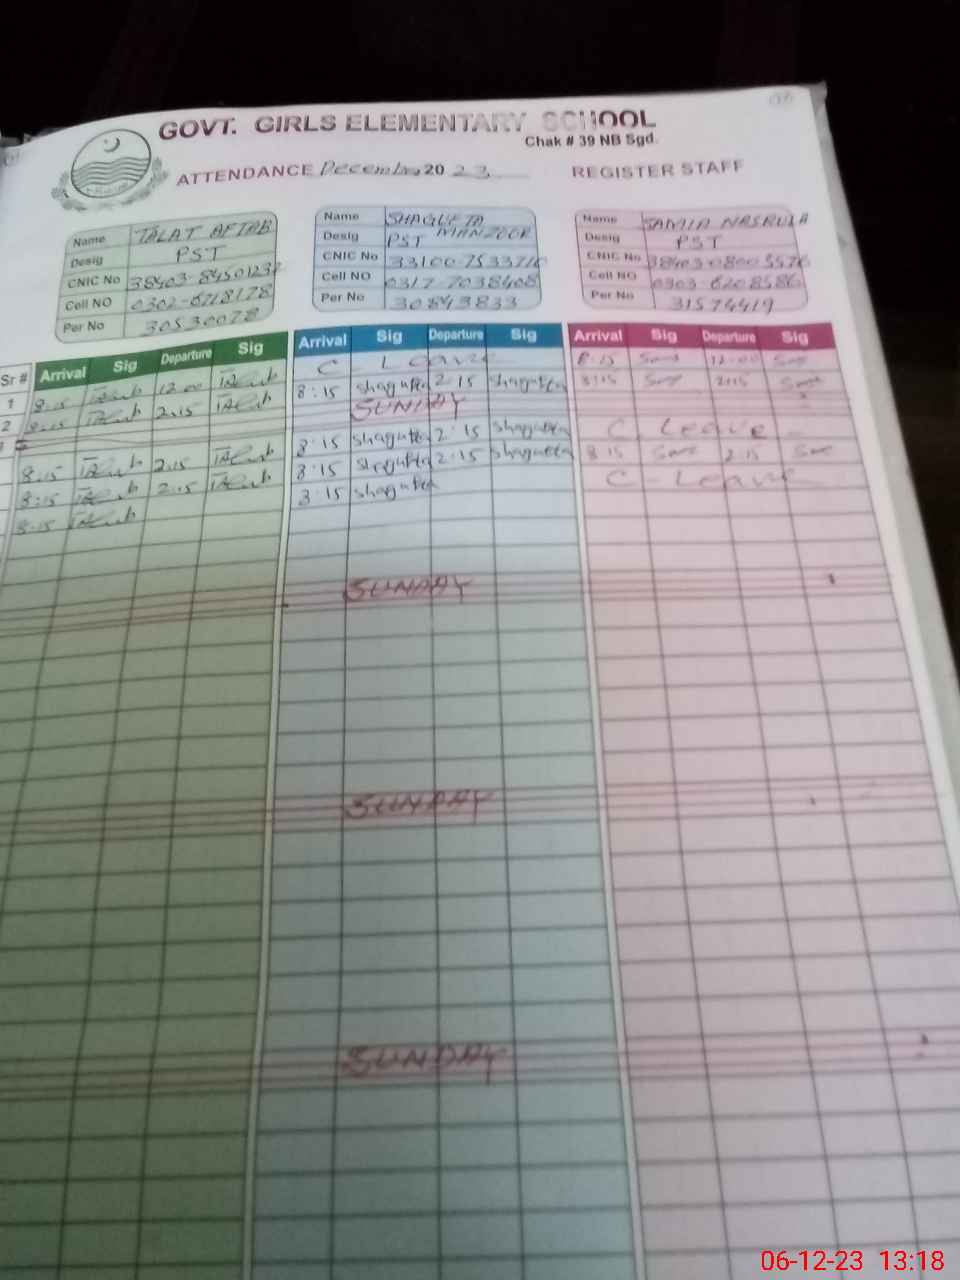 GOVT. GIRLS ELEMENTARY SCHOOL
Chak # 39 NB Sgd.
ATTENDANCE December 20 23 REGISTER STAFF
Name TALAT AFTAB
Desig PST
CNIC No
Cell NO 0302-6718178
Per No 30530078
Name SHAGUFTA MANZOOR
Desig PST
CNIC No 33100-7533716
Cell NO 0317-7038408
Per No 30843833
Name SAMIA NASRULA
Desig PST
CNIC No
Cell NO 0303-6208586
Per No 31574419
Sr # Arrival Sig Departure Sig Arrival Sig Departure Sig Arrival Sig Departure Sig
1 8:15 Talat 12:00 Talat C Leave 8:15 12:00
2 8:15 Talat 2:15 Talat 8:15 shagufta 2:15 shagufta 8:15 2:15
3 SUNDAY
8:15 Talat 2:15 Talat 8:15 shagufta 2:15 shagufta C. Leave
8:15 Talat 2:15 Talat 8:15 shagufta 2:15 shagufta 8:15 2:15
8:15 Talat 8:15 shagufta C - Leave
SUNDAY
SUNDAY
SUNDAY
06-12-23 13:18